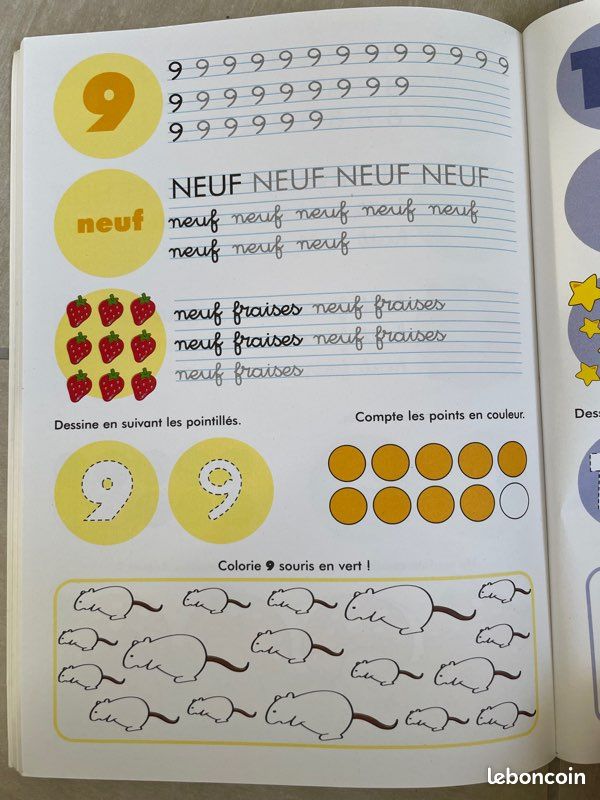 9
9 9 9 9 9 9 9 9 9 9 9 9 9
9 9 9 9 9 9 9 9 9
9 9 9 9 9 9
neuf
NEUF NEUF NEUF NEUF
neuf neuf neuf neuf neuf
neuf neuf neuf
neuf fraises neuf fraises
neuf fraises neuf fraises
neuf fraises
Dessine en suivant les pointillés.
Compte les points en couleur.
9 9
Colorie 9 souris en vert !
leboncoin